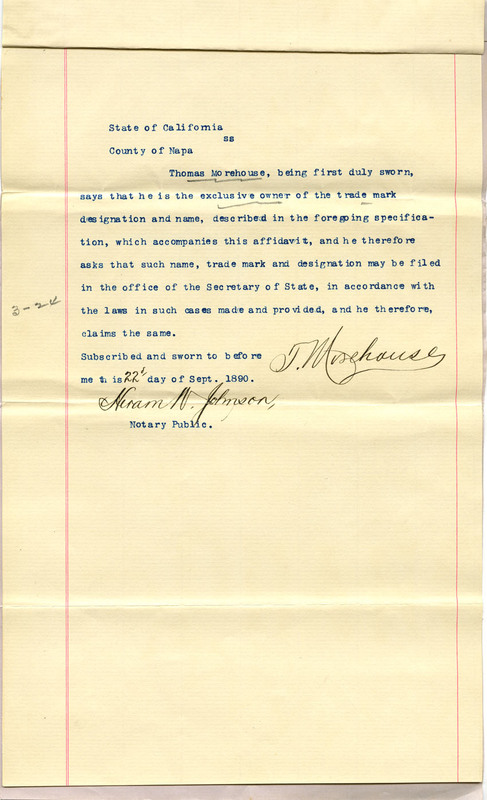 State of California
ss
County of Napa
Thomas Morehouse, being first duly sworn,
says that he is the exclusive owner of the trade mark
designation and name, described in the foregoing specifica-
tion, which accompanies this affidavit, and he therefore
asks that such name, trade mark and designation may be filed
in the office of the Secretary of State, in accordance with
3-24
the laws in such cases made and provided, and he therefore,
claims the same.
Subscribed and sworn to before
T. Morehouse
me this 22d day of Sept. 1890.
Hiram W. Johnson,
Notary Public.